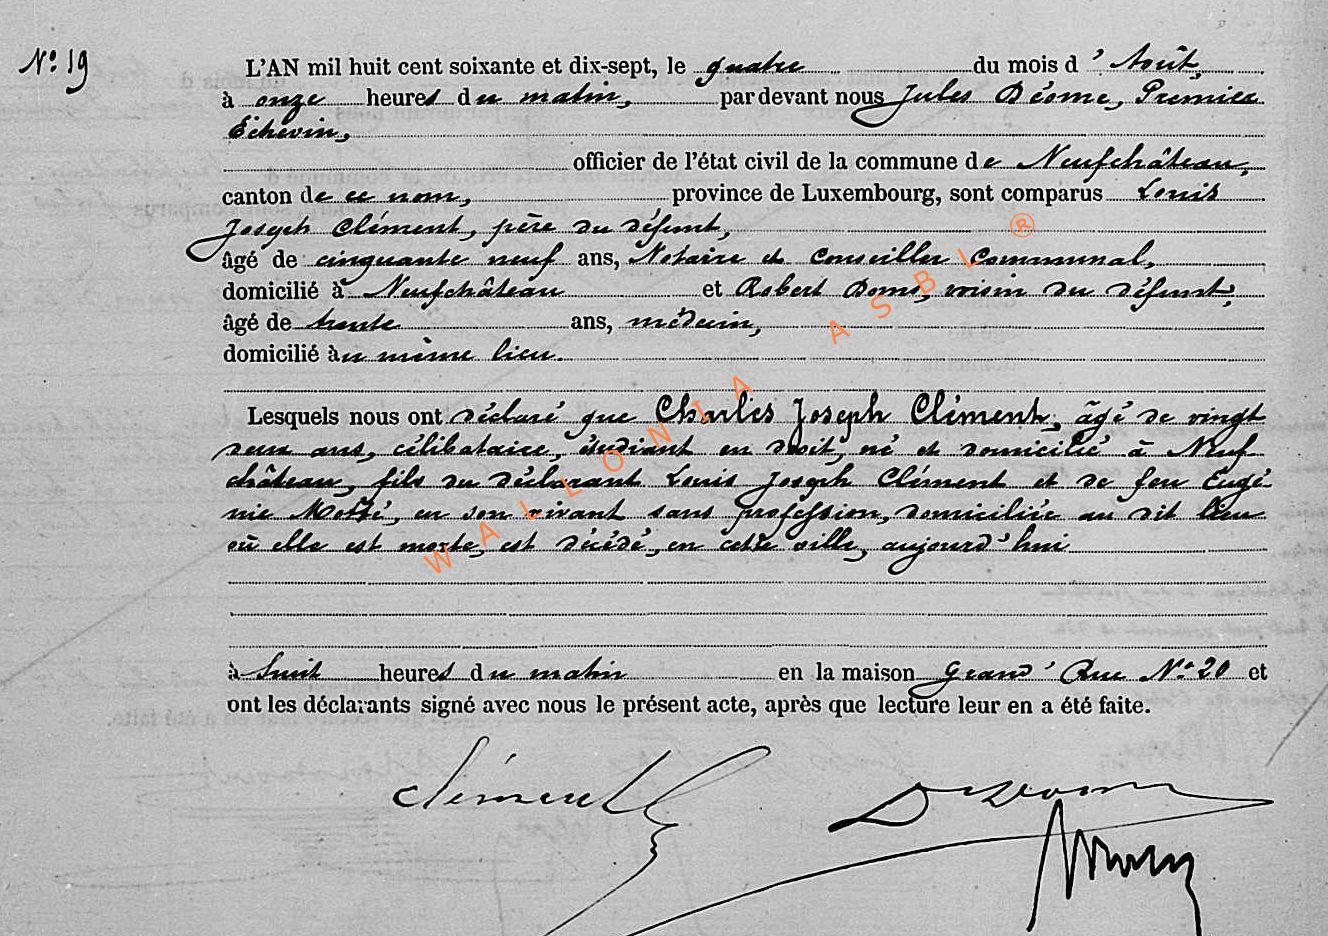 Nº 19
L'AN mil huit cent soixante et dix-sept, le quatre du mois d'Août,
à onze heures du matin, par devant nous Jules Déome, Premier
Echevin,
officier de l'état civil de la commune de Neufchâteau,
canton de ce nom, province de Luxembourg, sont comparus Louis
Joseph Clément, père du défunt,
âgé de cinquante neuf ans, Notaire et Conseiller Communal,
domicilié à Neufchâteau et Robert Doms, voisin du défunt,
âgé de trente ans, médecin,
domicilié au même lieu.
Lesquels nous ont déclaré que Charles Joseph Clément, âgé de vingt
deux ans, célibataire, étudiant en droit, né et domicilié à Neuf-
château, fils du déclarant Louis Joseph Clément et de feu Eugé-
nie, en son vivant sans profession, domiciliée au dit lieu
où elle est morte, est décédé, en cette ville, aujourd'hui
à huit heures du matin en la maison Grand' Rue Nº 20 et
ont les déclarants signé avec nous le présent acte, après que lecture leur en a été faite.
Clément
WALLONIA ASBL ®